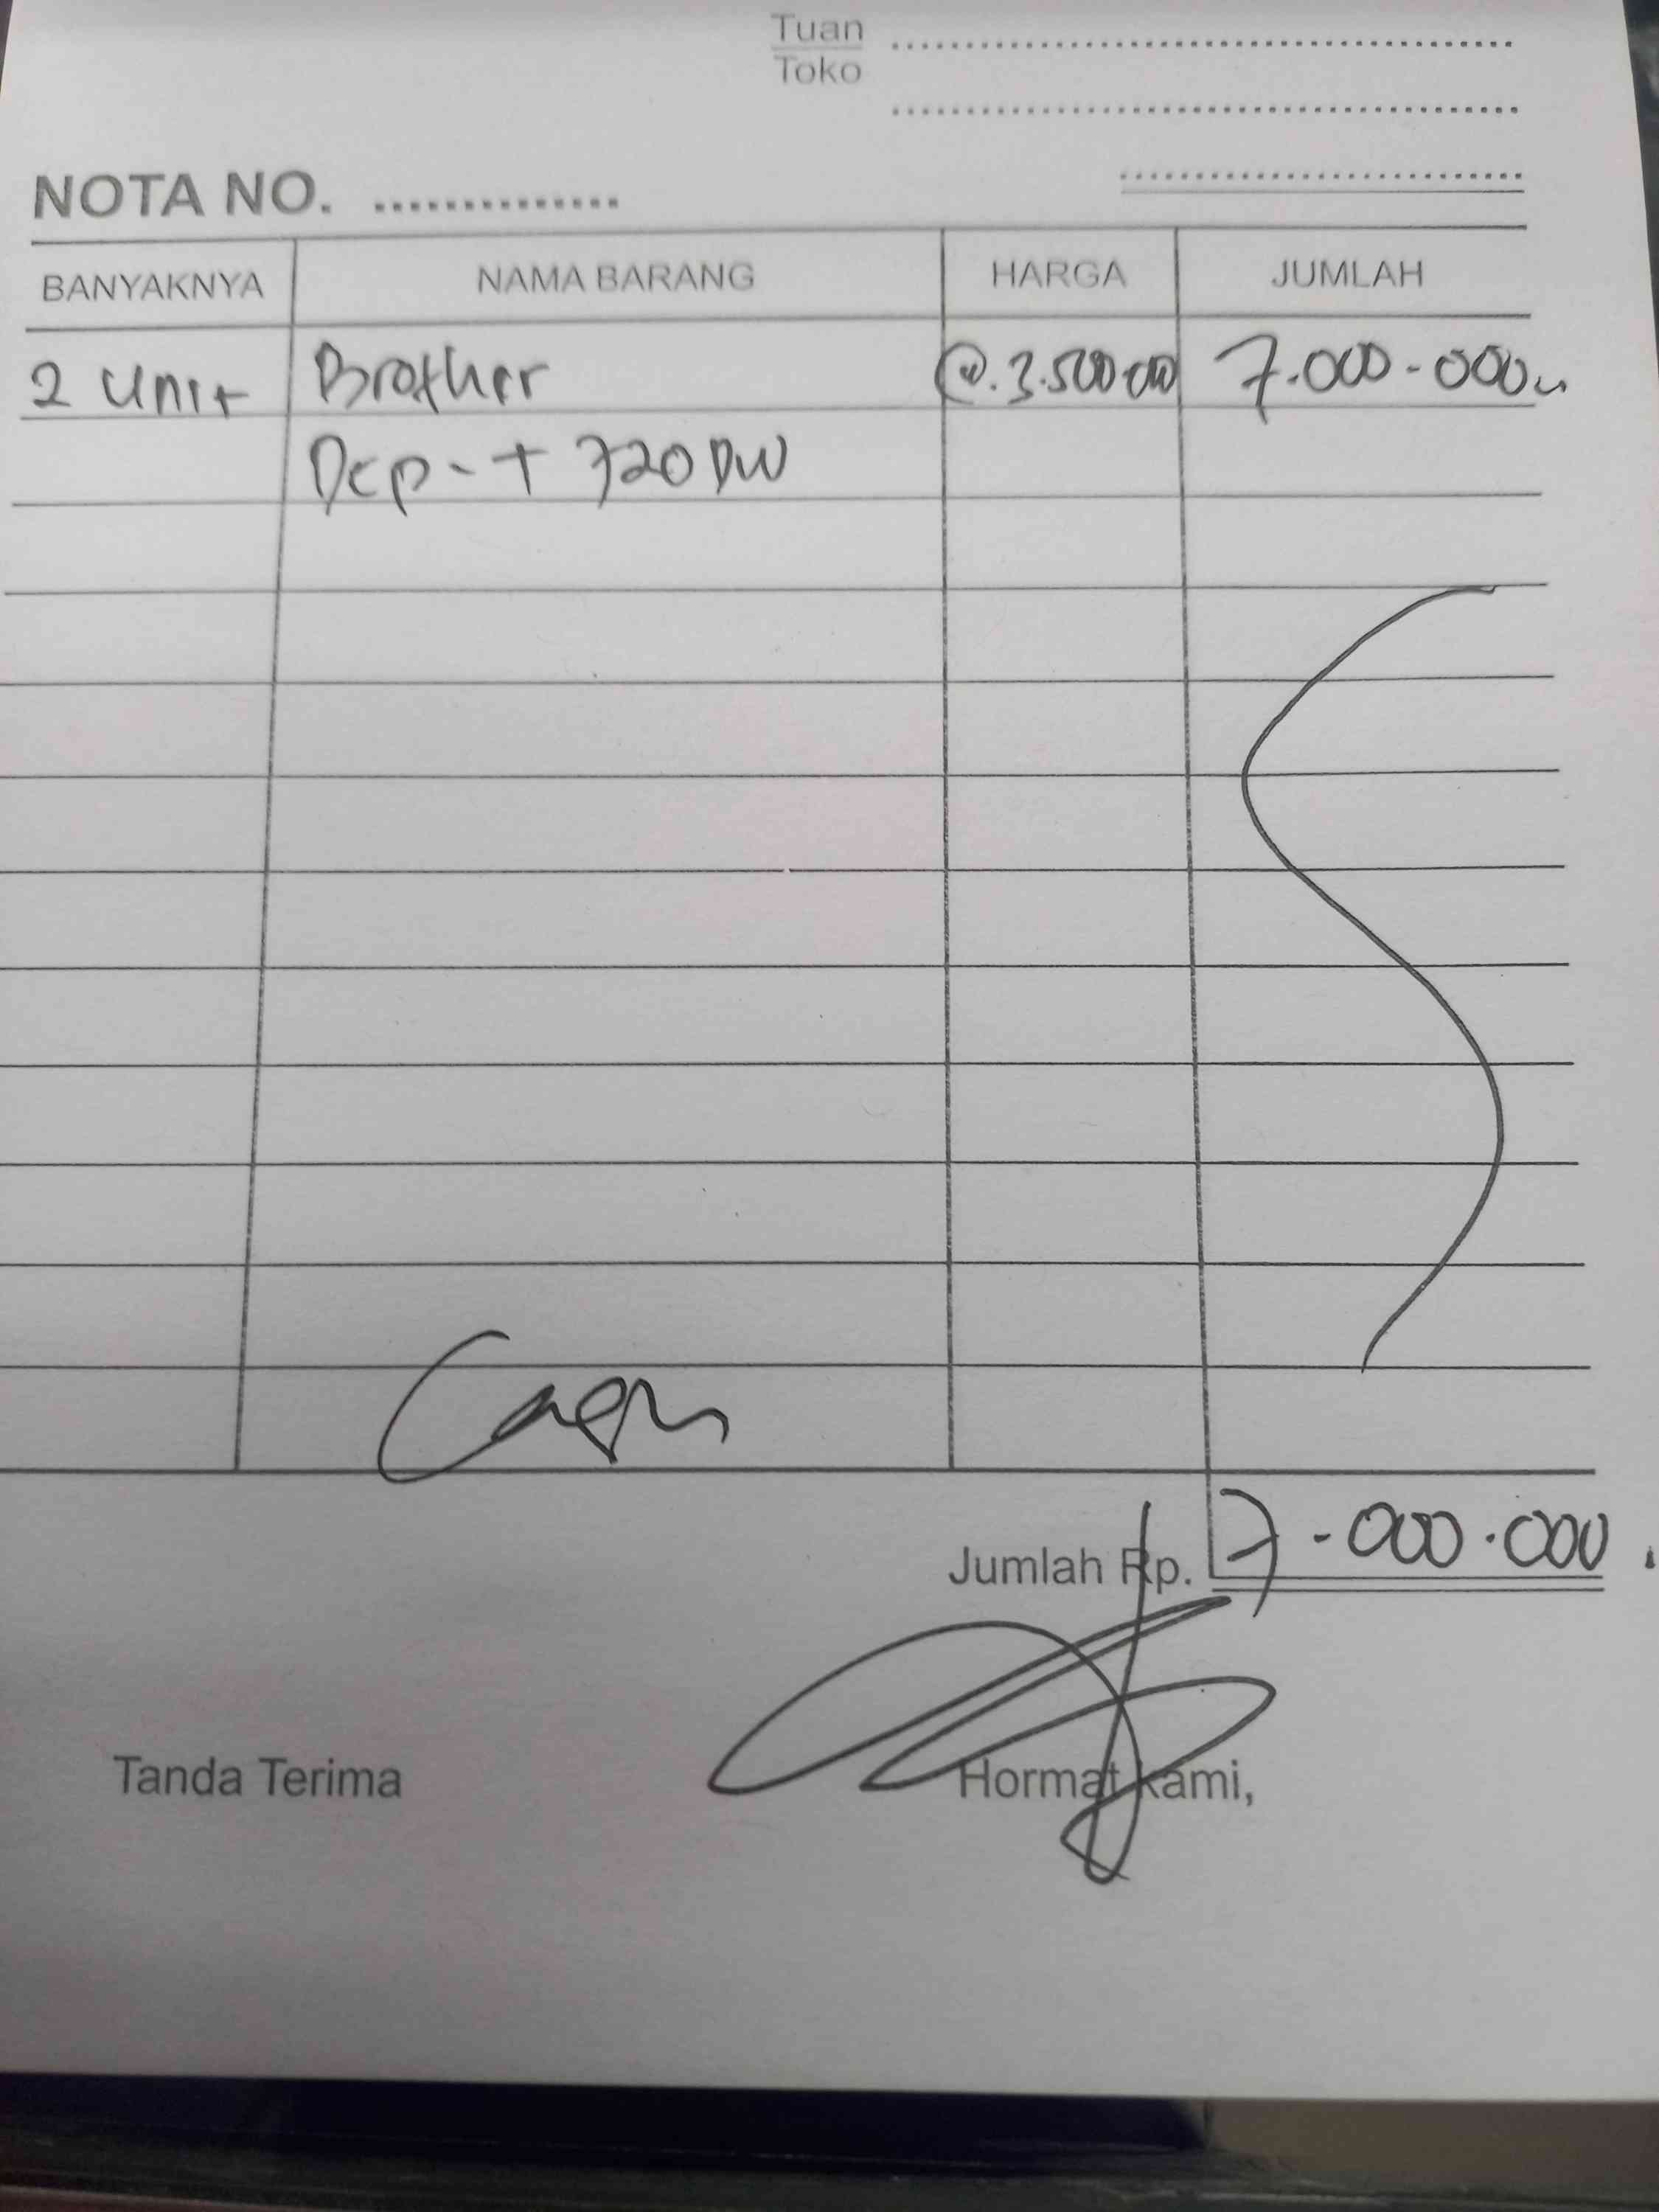 Tuan
Toko
NOTA NO. ..............
BANYAKNYA NAMA BARANG HARGA JUMLAH
2 unit Brother @.3.500.000 7.000-000
Dcp-T 720 DW
Cash
Jumlah Rp. 7-000.000.
Tanda Terima Hormat kami,